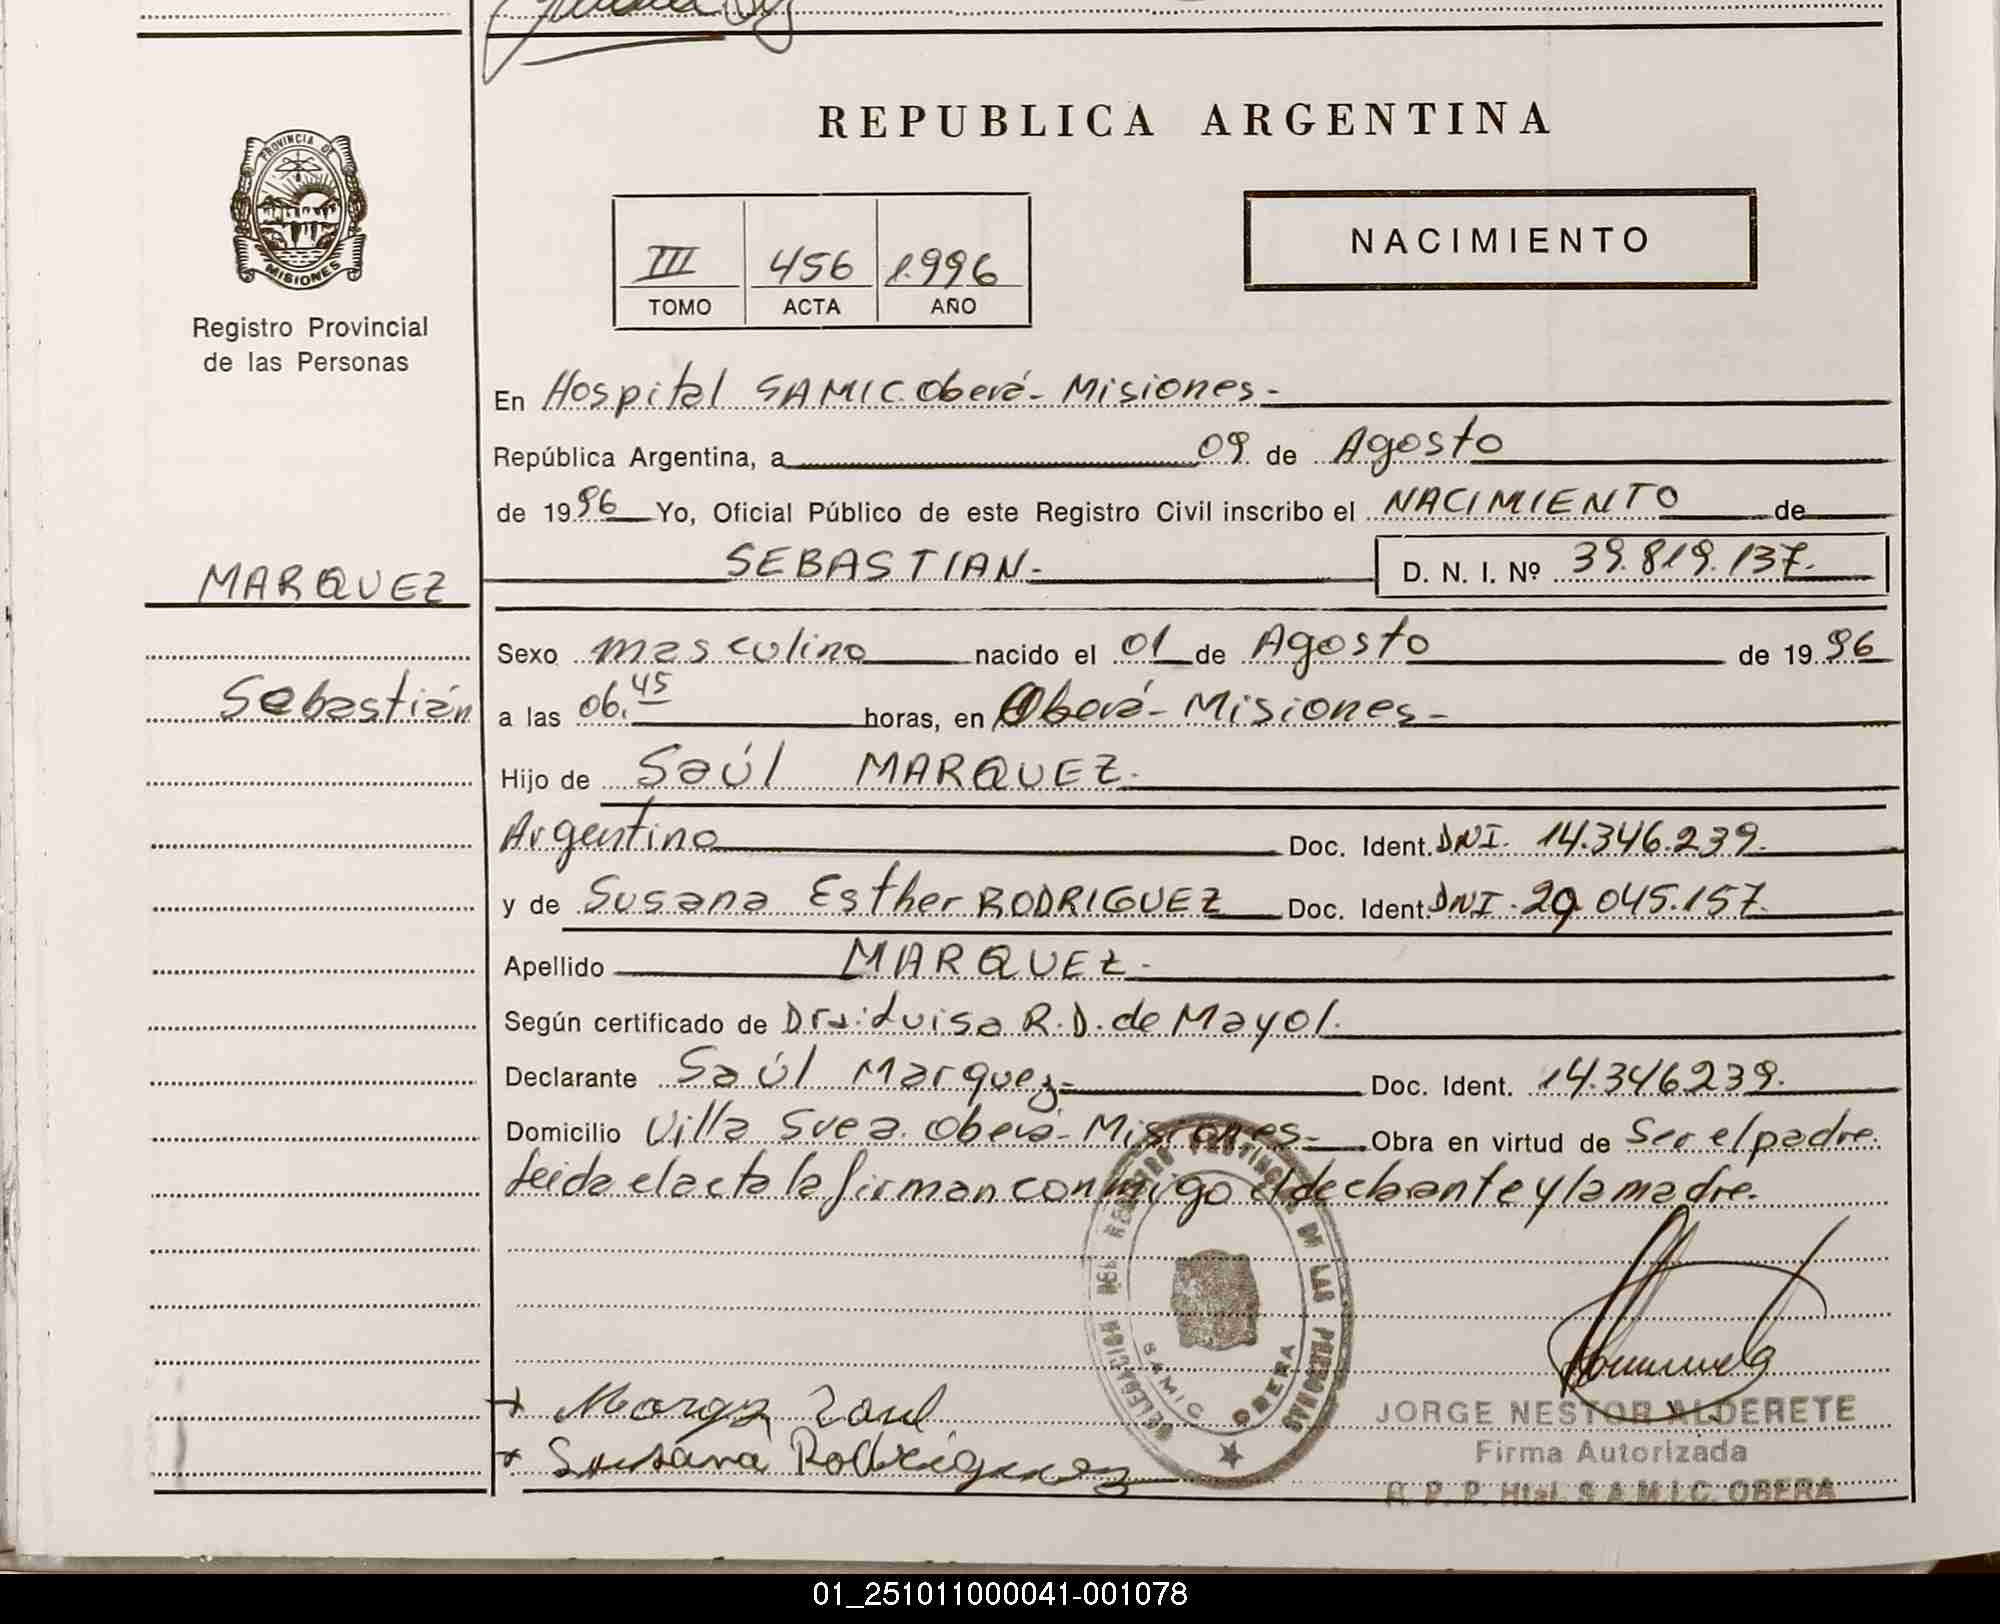 REPUBLICA ARGENTINA
PROVINCIA DE
MISIONES
Registro Provincial
de las Personas
III 456 1.996
TOMO ACTA AÑO
NACIMIENTO
En Hospital SAMIC. Oberá - Misiones -
República Argentina, a 09 de Agosto
de 1996 Yo, Oficial Público de este Registro Civil inscribo el NACIMIENTO de
MARQUEZ
SEBASTIAN.- D. N. I. Nº 39.819.137.
Sexo masculino nacido el 01 de Agosto de 1996
Sebastián
a las 06.45 horas, en Oberá - Misiones -
Hijo de Saúl MARQUEZ.
Argentino Doc. Ident. DNI. 14.346.239.
y de Susana Esther RODRIGUEZ Doc. Ident. DNI. 29.045.157.
Apellido MARQUEZ -
Según certificado de Dra: Luisa R. D. de Mayol.
Declarante Saúl Marquez - Doc. Ident. 14.346239.
Domicilio Villa Svea. Oberá - Misiones - Obra en virtud de Ser el padre.
Leida el acta la firman conmigo el declarante y la madre.
DELEGACION DEL REGISTRO PROVINCIAL DE LAS PERSONAS
SAMIC OBERA
Susana Rodriguez
JORGE NESTOR ALDERETE
Firma Autorizada
R. P. P. Htal. S.A.M.I.C. OBERA
01_251011000041-001078